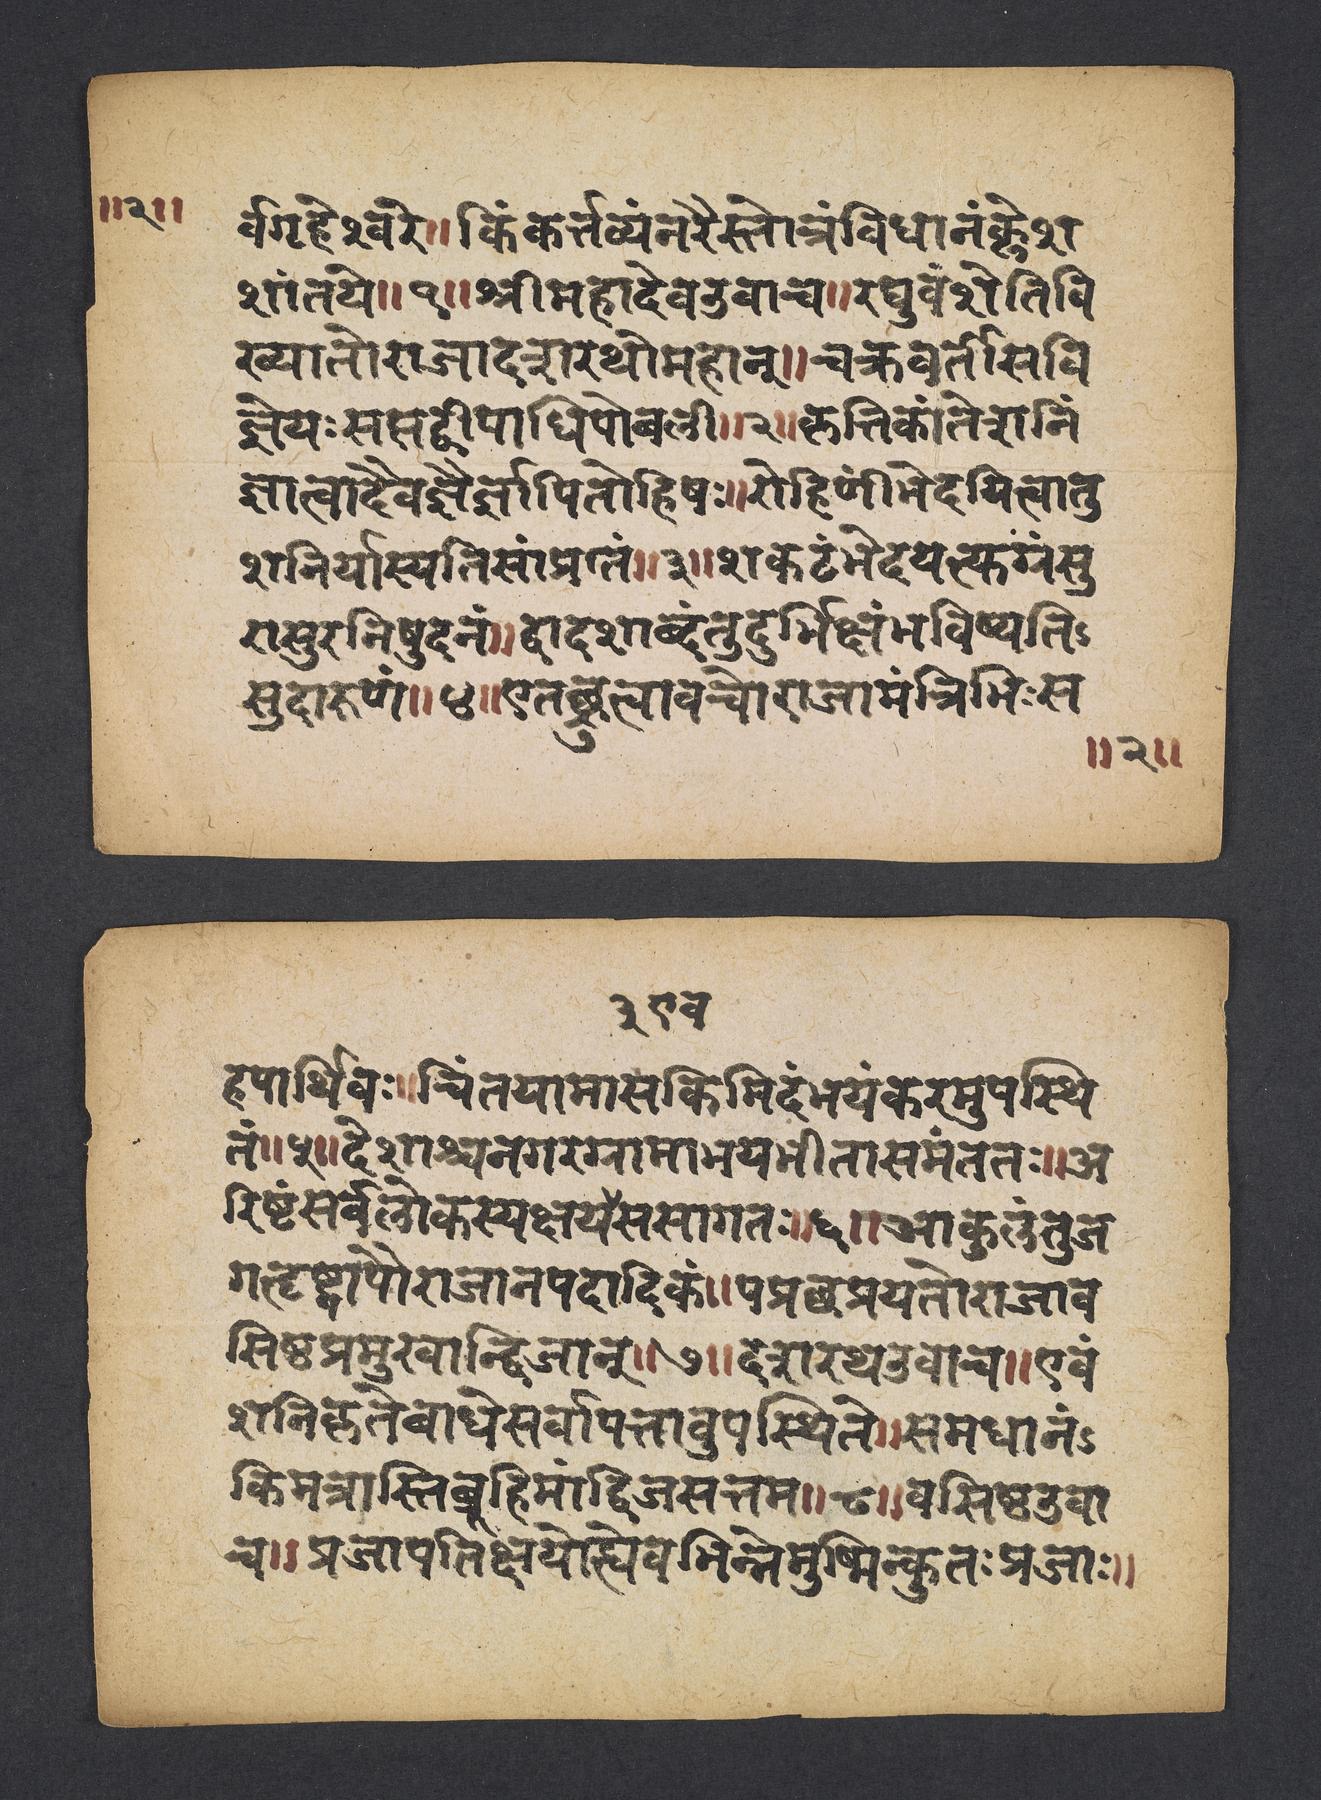 ॥२॥
र्वगृहेश्वरे॥किंकर्त्तव्यंनरैस्तोत्रंविधानंक्लेश
शांतये॥१॥श्रीमहादेवउवाच॥रघुवंशेतिवि
ख्यातोराजादशरथोमहान्॥चक्रवर्तीसवि
ज्ञेयःसप्तद्वीपाधिपोबली॥२॥कृत्तिकांतेशनिं
ज्ञात्वादैवज्ञैर्ज्ञापितोहिषः॥रोहिणींभेदयित्वातु
शनिर्यास्यतिसांप्रतं॥३॥शकटंभेदयत्युग्रंसु
रासुरनिषुदनं॥द्वादशाब्दंतुदुर्भिक्षंभविष्यतिऽ
सुदारूणं॥४॥एतछ्रुत्वावचोराजामंत्रिभिःस
॥२॥
३एव
हपार्थिवः॥चिंतयामासकिमिदंभयंकरमुपस्थि
तं॥५॥देशाश्चनगरग्रामाभयभीतासमंततः॥अ
रिष्टंसर्वलोकस्यक्षयोससागतः॥६॥आकुलंतुज
गत्दृष्ट्वापौराजानपदादिकं॥पप्रछप्रयतोराजाव
सिष्ठप्रमुखान्द्विजान्॥७॥दशरथउवाच॥एवं
शनिकृतेबाधेसर्वापत्तावुपस्थिते॥समधानंऽ
किमत्रास्तिब्रूहिमांद्विजसत्तम॥८॥वसिष्ठउवा
च॥प्रजापतिक्षयोह्येवभिन्नेमुष्मिन्कुतःप्रजाः॥